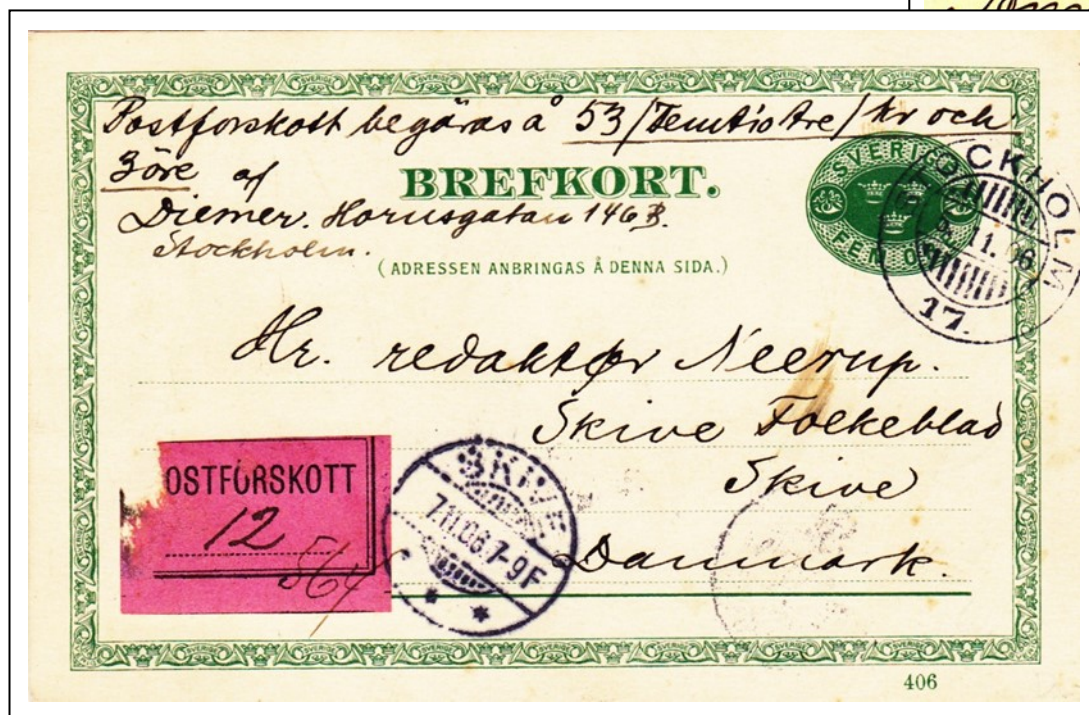 Postforskott begäras å 53/Femtiotre/Kr och
3 öre af
BREFKORT.
Diemer. Hornsgatan 146 B.
Stockholm.
(ADRESSEN ANBRINGAS Å DENNA SIDA.)
SVERIGE
FEM ÖRE
STOCKHOLM
11. 06
17.
Hr. redaktør Neerup.
Skive Folkeblad
Skive
Danmark.
OSTFÖRSKOTT
12
564
SKIVE
7.11.06.7-9F
406